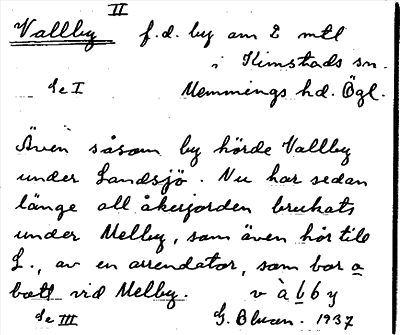 II
Vallby f.d. by om 2 mtl
i Kimstads sn.
Se I Memmings hd. Ögl.
Även såsom by hörde Vallby
under Landsjö. Nu har sedan
länge all åkerjorden brukats
under Melby, som även hör till
L., av en arrendator, som bor a
batt vid Melby. v à b b y
Se III G. Blman. 1937